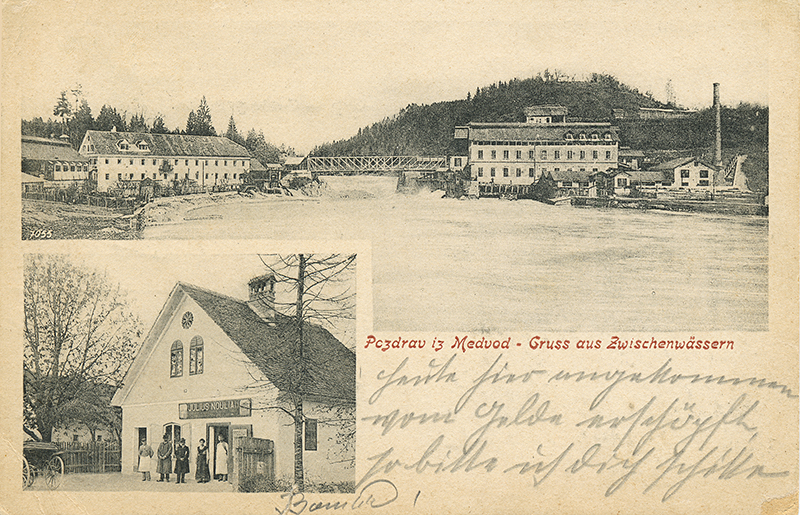 7055
JULIUS NOULIAN
Pozdrav iz Medvod - Gruss aus Zwischenwässern
heute hier angekommen
vom Gelde erschöpft,
so bitte ich dich schitte